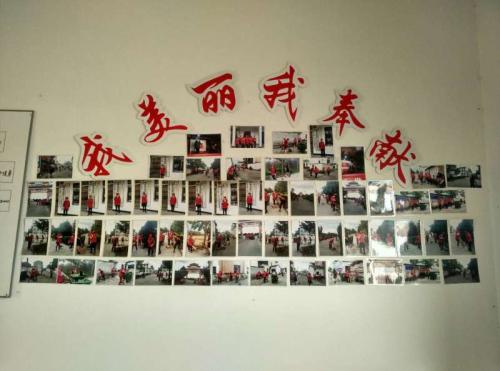 我美丽我奉献